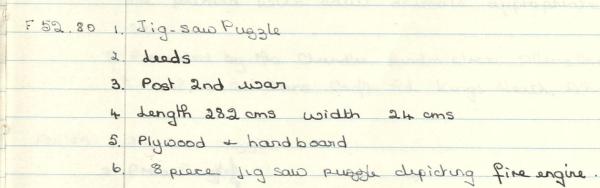 F 52.80 1. Jig-saw Puzzle
2. Leeds
3. Post 2nd war
4. Length 28.2 cms width 24 cms
5. Plywood + hardboard
6. 8 piece jig saw puzzle depicting fire engine.